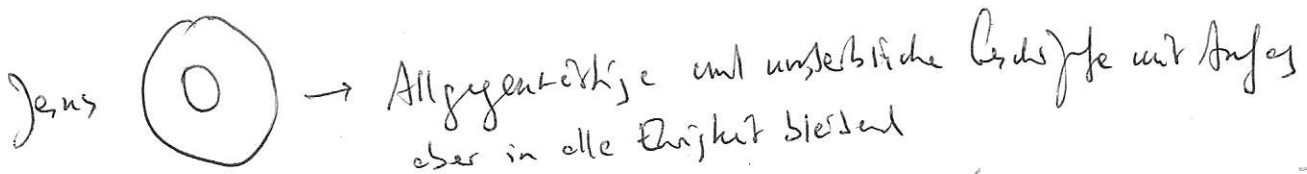 Jesus → Allgegenwärtige und unsterbliche Geschöpfe mit Anfang
aber in alle Ewigkeit bleibend